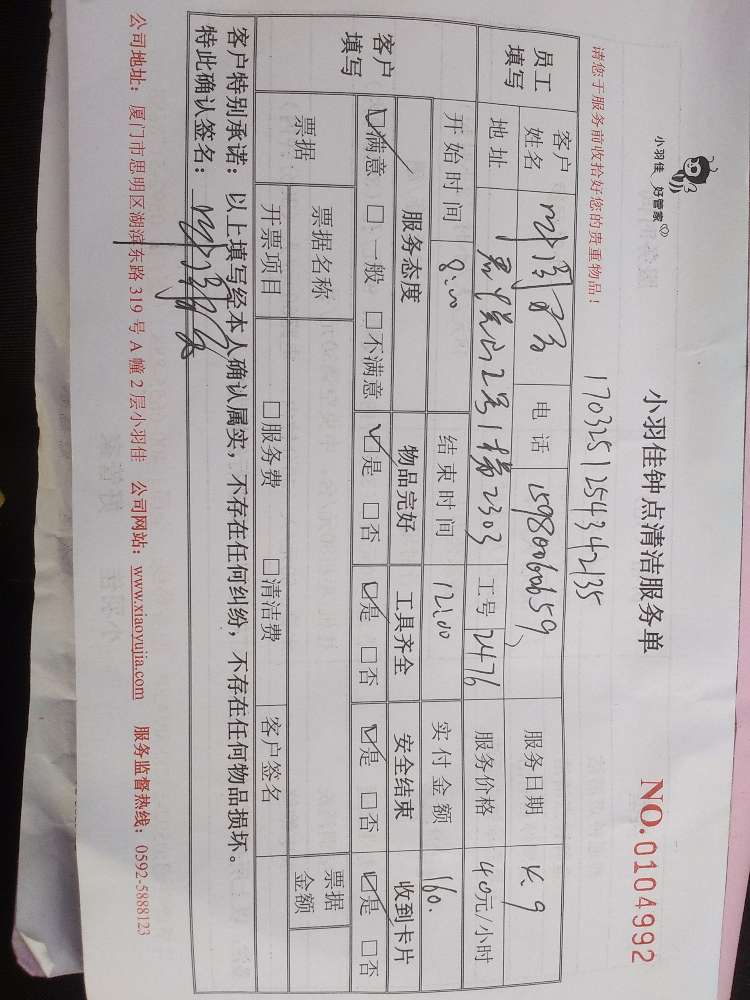 小羽佳 好管家
小羽佳钟点清洁服务单
NO.0104992
请您于服务前收拾好您的贵重物品！
1703251254342135
员工填写
客户姓名 电话 15980060659 服务日期 4.9
地址 2号1梯2303 工号 2476 服务价格 40元/小时
开始时间 8:00 结束时间 12:00 实付金额 160.
客户填写
服务态度 物品完好 工具齐全 安全结束 收到卡片
☑满意 □一般 □不满意 ☑是 □否 ☑是 □否 ☑是 □否 ☑是 □否
票据 票据名称 票据金额
开票项目 □服务费 □清洁费 客户签名
客户特别承诺：以上填写经本人确认属实，不存在任何纠纷，不存在任何物品损坏。
特此确认签名：
公司地址：厦门市思明区湖滨东路 319 号 A 幢 2 层小羽佳 公司网站：www.xiaoyujia.com 服务监督热线：0592-5888123